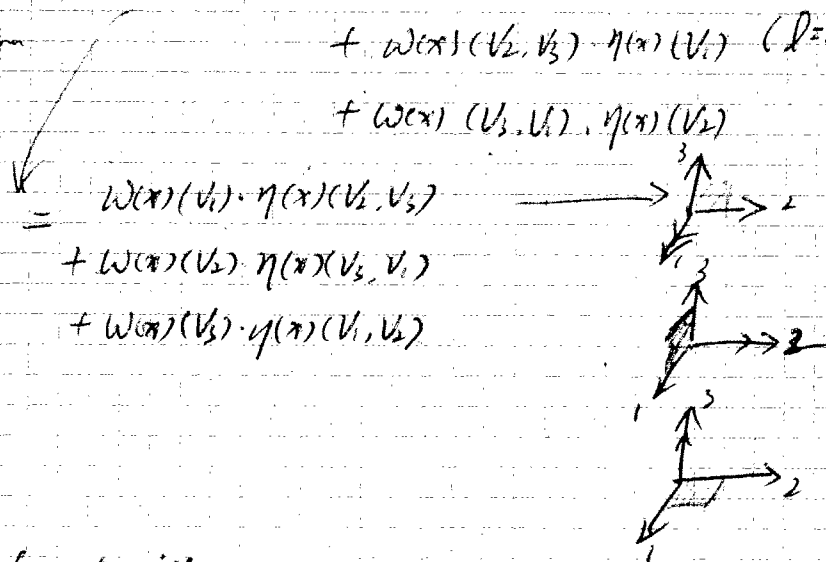 + ω(x)(V₂, V₃) · η(x)(V₁) (l=
+ ω(x)(V₃, V₁) · η(x)(V₂)
= ω(x)(V₁) · η(x)(V₂, V₃)
+ ω(x)(V₂) · η(x)(V₃, V₁)
+ ω(x)(V₃) · η(x)(V₁, V₂)
3
2
1
3
2
1
3
2
1